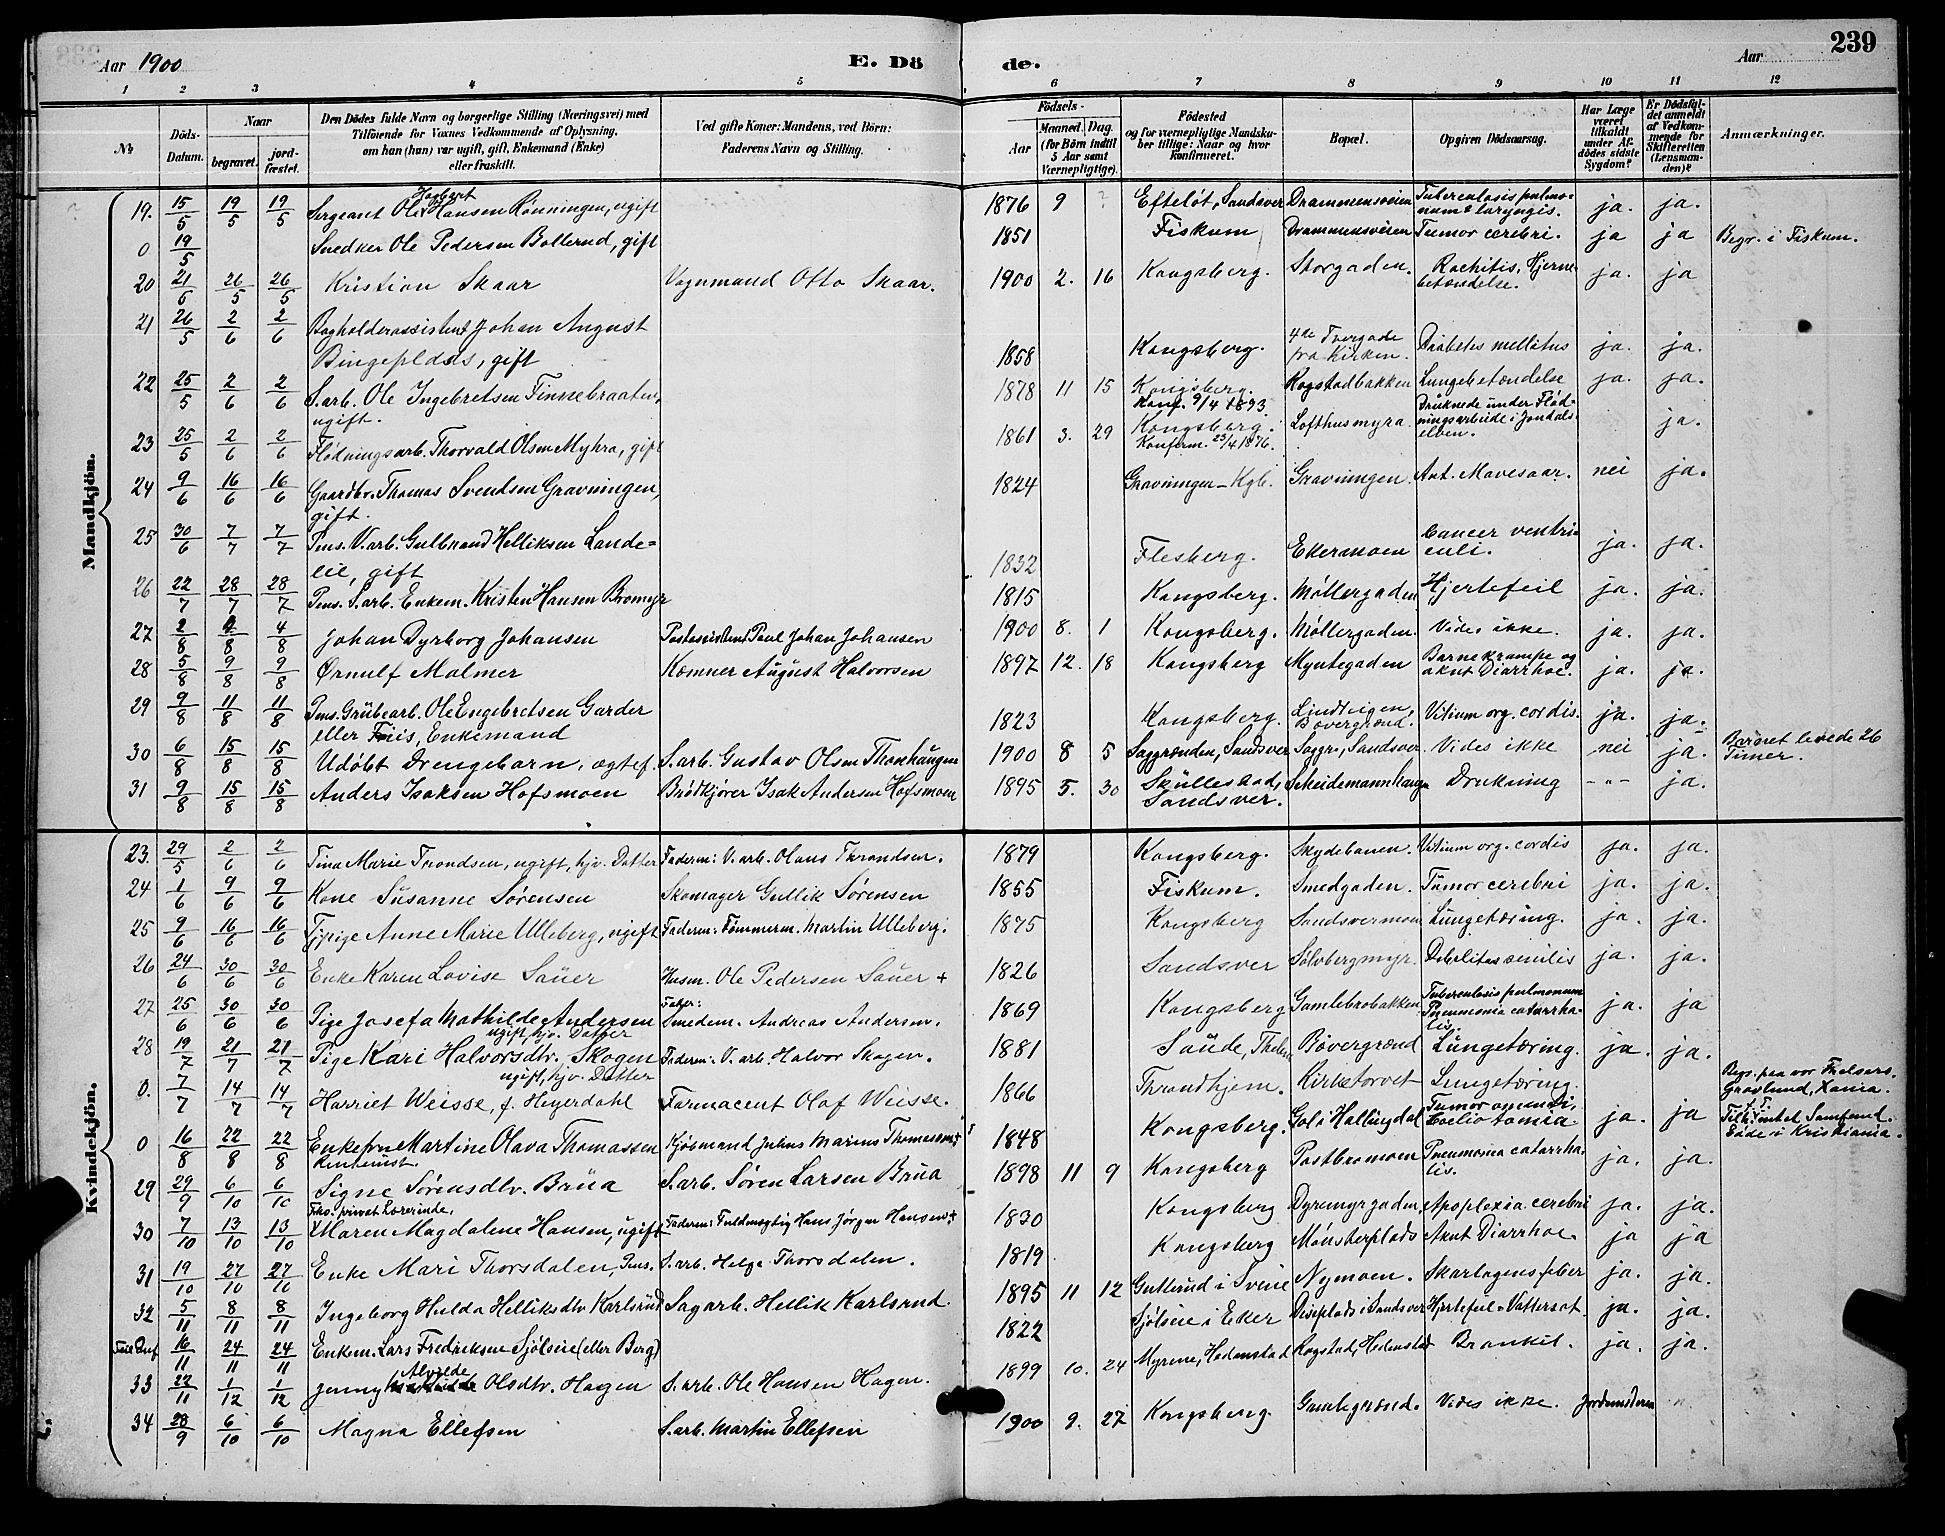 Aar 1900 E. Dö de. Aar 239
1 2 3 4 5 6 7 8 9 10 11 12
No. Döds-Datum. Naar begravet. jordfæstet. Den Dödes fulde Navn og borgerlige Stilling (Næringsvei) med Tilföiende for Voxnes Vedkommende af Oplysning, om han (hun) var ugift, gift, Enkemand (Enke) eller fraskilt. Ved gifte Koner: Mandens, ved Börn: Faderens Navn og Stilling. Födsels- Aar Maaned. Dag. (for Börn indtil 5 Aar samt Værnepligtige). Födested og for værnepligtige Mandskaber tillige: Naar og hvor konfirmeret. Bopæl. Opgiven Dödsaarsag. Har Læge været tilkaldt under Afdödes sidste Sygdom? Er Dödsfaldet anmeldt af Vedkommende for Skifteretten (Lensmanden)? Anmærkninger.
Mandkjön.
19. 15/5 19/5 19/5 Sergeant Ole Hagbart Hansen Rønningen, ugift 1876 9 ? Efteløt, Sandsver Drammensveien Tuberculosis pulmonum & laryngis. ja. ja.
0 19/5 Snedker Ole Pedersen Bollerud, gift 1851 Fiskum Drammensveien Tumor cerebri. ja ja Begr. i Fiskum.
20 21/5 26/5 26/5 Kristian Skaar Vognmand Otto Skaar. 1900 2. 16 Kongsberg. Storgaden. Rachitis, Hjernebetændelse. ja. ja
21 26/5 2/6 2/6 Bogholderassistent Johan August Bingeplads, gift 1858 Kongsberg. 4de Tvergade fra Kirken. Diabetes mellitus ja. ja.
22 25/5 2/6 2/6 S.arb. Ole Ingebretsen Finnebraaten, ugift. 1878 11 15 Kongsberg. Konf. 9/4 1893. Rogstadbakken Lungebetændelse ja. ja.
23 25/5 2/6 2/6 Flødningsarb. Thorvald Olsen Myhra, gift 1861 3. 29 Kongsberg. Konfirm. 23/4 1876. Lofthusmyra Druknede under Flødningsarbeide i Jondalselven. ja.
24 9/6 16/6 16/6 Gaardbr. Thomas Svendsen Gravningen, gift. 1824 Gravningen - Kgb. Gravningen. Ant. Mavesaar. nei ja.
25 30/6 7/7 7/7 Pens. V.arb. Gulbrand Helliksen Landelie, gift 1832 Flesberg. Ekermoen Cancer ventriculi. ja. ja.
26 22/7 28/7 28/7 Pens. S.arb. Enkem. Kristen Hansen Bromyr 1815 Kongsberg. Møllergaden Hjertefeil ja. ja.
27 2/8 4/8 4/8 Johan Dyrborg Johansen Postassistent Paul Johan Johansen 1900 8. 1 Kongsberg. Møllergaden. Vides ikke. ja. ja.
28 5/8 9/8 9/8 Ørnulf Malmer Kæmner August Halvorsen 1897 12. 18 Kongsberg Myntegaden Barnekrampe og akut Diarrhoe. ja. ja.
29 9/8 11/8 11/8 Pens. Grubearb. Ole Engebretsen Garder eller Friis, Enkemand 1823 Kongsberg. Lindteigen, Bøvergrænd. Vitium org. cordis. ja. ja.
30 6/8 15/8 15/8 Udøbt Drengebarn, ægtef. S.arb. Gustav Olsen Thonhaugen 1900 8 5 Saggrenden, Sandsver Saggr., Sandsver. Vides ikke nei ja. Barnet levede 26 Timer.
31 9/8 15/8 15/8 Anders Isaksen Hofsmoen Brødkjører Isak Andersen Hofsmoen 1895 5. 30 Skullestad, Sandsver. Scheidemannhaugen Drukning -"- ja.
Kvindekjön.
23. 29/5 2/6 2/6 Tina Marie Trondsen, ugift, hjv. Datter Faderen: V.arb. Olaus Throndsen. 1879 Kongsberg. Skydebanen. Vitium org. cordis ja. ja.
24 1/6 9/6 9/6 Kone Susanne Sørensen Skomager Gullik Sørensen 1855 Fiskum. Smedgaden. Tumor cerebri ja. ja.
25 9/6 16/6 16/6 Tjpige Anne Marie Ulleberg, ugift Faderen: Tømmerm. Martin Ulleberg. 1875 Kongsberg Sandsvermoen Lungetæring. ja. ja.
26 24/6 30/6 30/6 Enke Karen Lovise Sauer Husm. Ole Pedersen Sauer + 1826 Sandsver Sølvbergmyr. Debilitas senilis ja. ja.
27 25/6 30/6 30/6 Pige Josefa Mathilde Andersen ugift, hjv. Datter Fader: Smedem. Andreas Andersen. 1869 Kongsberg Gamlebrobakken Tuberculosis pulmonum Pneumonia catarrhalis. ja. ja
28 19/7 21/7 21/7 Pige Kari Halvorsdtr. Skogen ugift, hjv. Datter Faderen: V.arb. Halvor Skogen. 1881 Saude, Thelem. Bøvergrænd Lungetæring. ja. ja.
0. 7/7 14/7 14/7 Harriet Weisse, f. Heyerdahl Farmaceut Olaf Weisse. 1866 Throndhjem. Kirketorvet Lungetæring. Begr. paa vor Frelsers Gravlund, Xania.
0 16/8 22/8 22/8 Enkefru Martine Olava Thomassen Rentenist. Kjøbmand Julius Marius Thomassen + 1848 Kongsberg. Gol i Hallingdal Tumor omenti, Coeliotomia. ja. ja Døde i Kristiania.
29 29/9 6/10 6/10 Signe Sørensdtr. Brua S.arb. Søren Larsen Brua 1898 11 9 Kongsberg Postbromoen Pneumonia catarrhalis. ja. ja.
30 7/10 13/10 13/10 Fhv. privat Lærerinde, Maren Magdalene Hansen, ugift Faderen: Fuldmægtig Hans Jørgen Hansen + 1830 Kongsberg Dyremyrgaden. Apoplexia cerebri ja. ja.
31 19/10 27/10 27/10 Enke Mari Thorsdalen, Pens. S.arb. Helge Thorsdalen. 1819 Kongsberg Mønsterplads Akut Diarrhoe. ja ja
32 5/11 8/11 8/11 Ingeborg Hulda Helliksdtr Karlsrud Sagarb. Hellik Karlsrud. 1895 11 12 Gutterud i Sveine Nymoen. Skarlagensfeber ja. ja.
Feil Inf 16/11 24/11 24/11 Enkem. Lars Fredriksen Sjølseie (eller Berg) 1822 Sjølseie i Eker Diseplads i Sandsver Hjertefeil - Vattersot. ja. ja.
33 22/11 1/12 1/12 Jenny Alvilde Olsdtr. Hagen S.arb. Ole Hansen Hagen. 1899 10. 24 Myrene, Hedenstad Rogstad, Hedenstad Bronkit. ja. ja.
34 28/9 6/10 6/10 Magna Ellefsen S.arb. Martin Ellefsen 1900 9. 27 Kongsberg. Gamlegrænd. Vides ikke. Jordemoderen